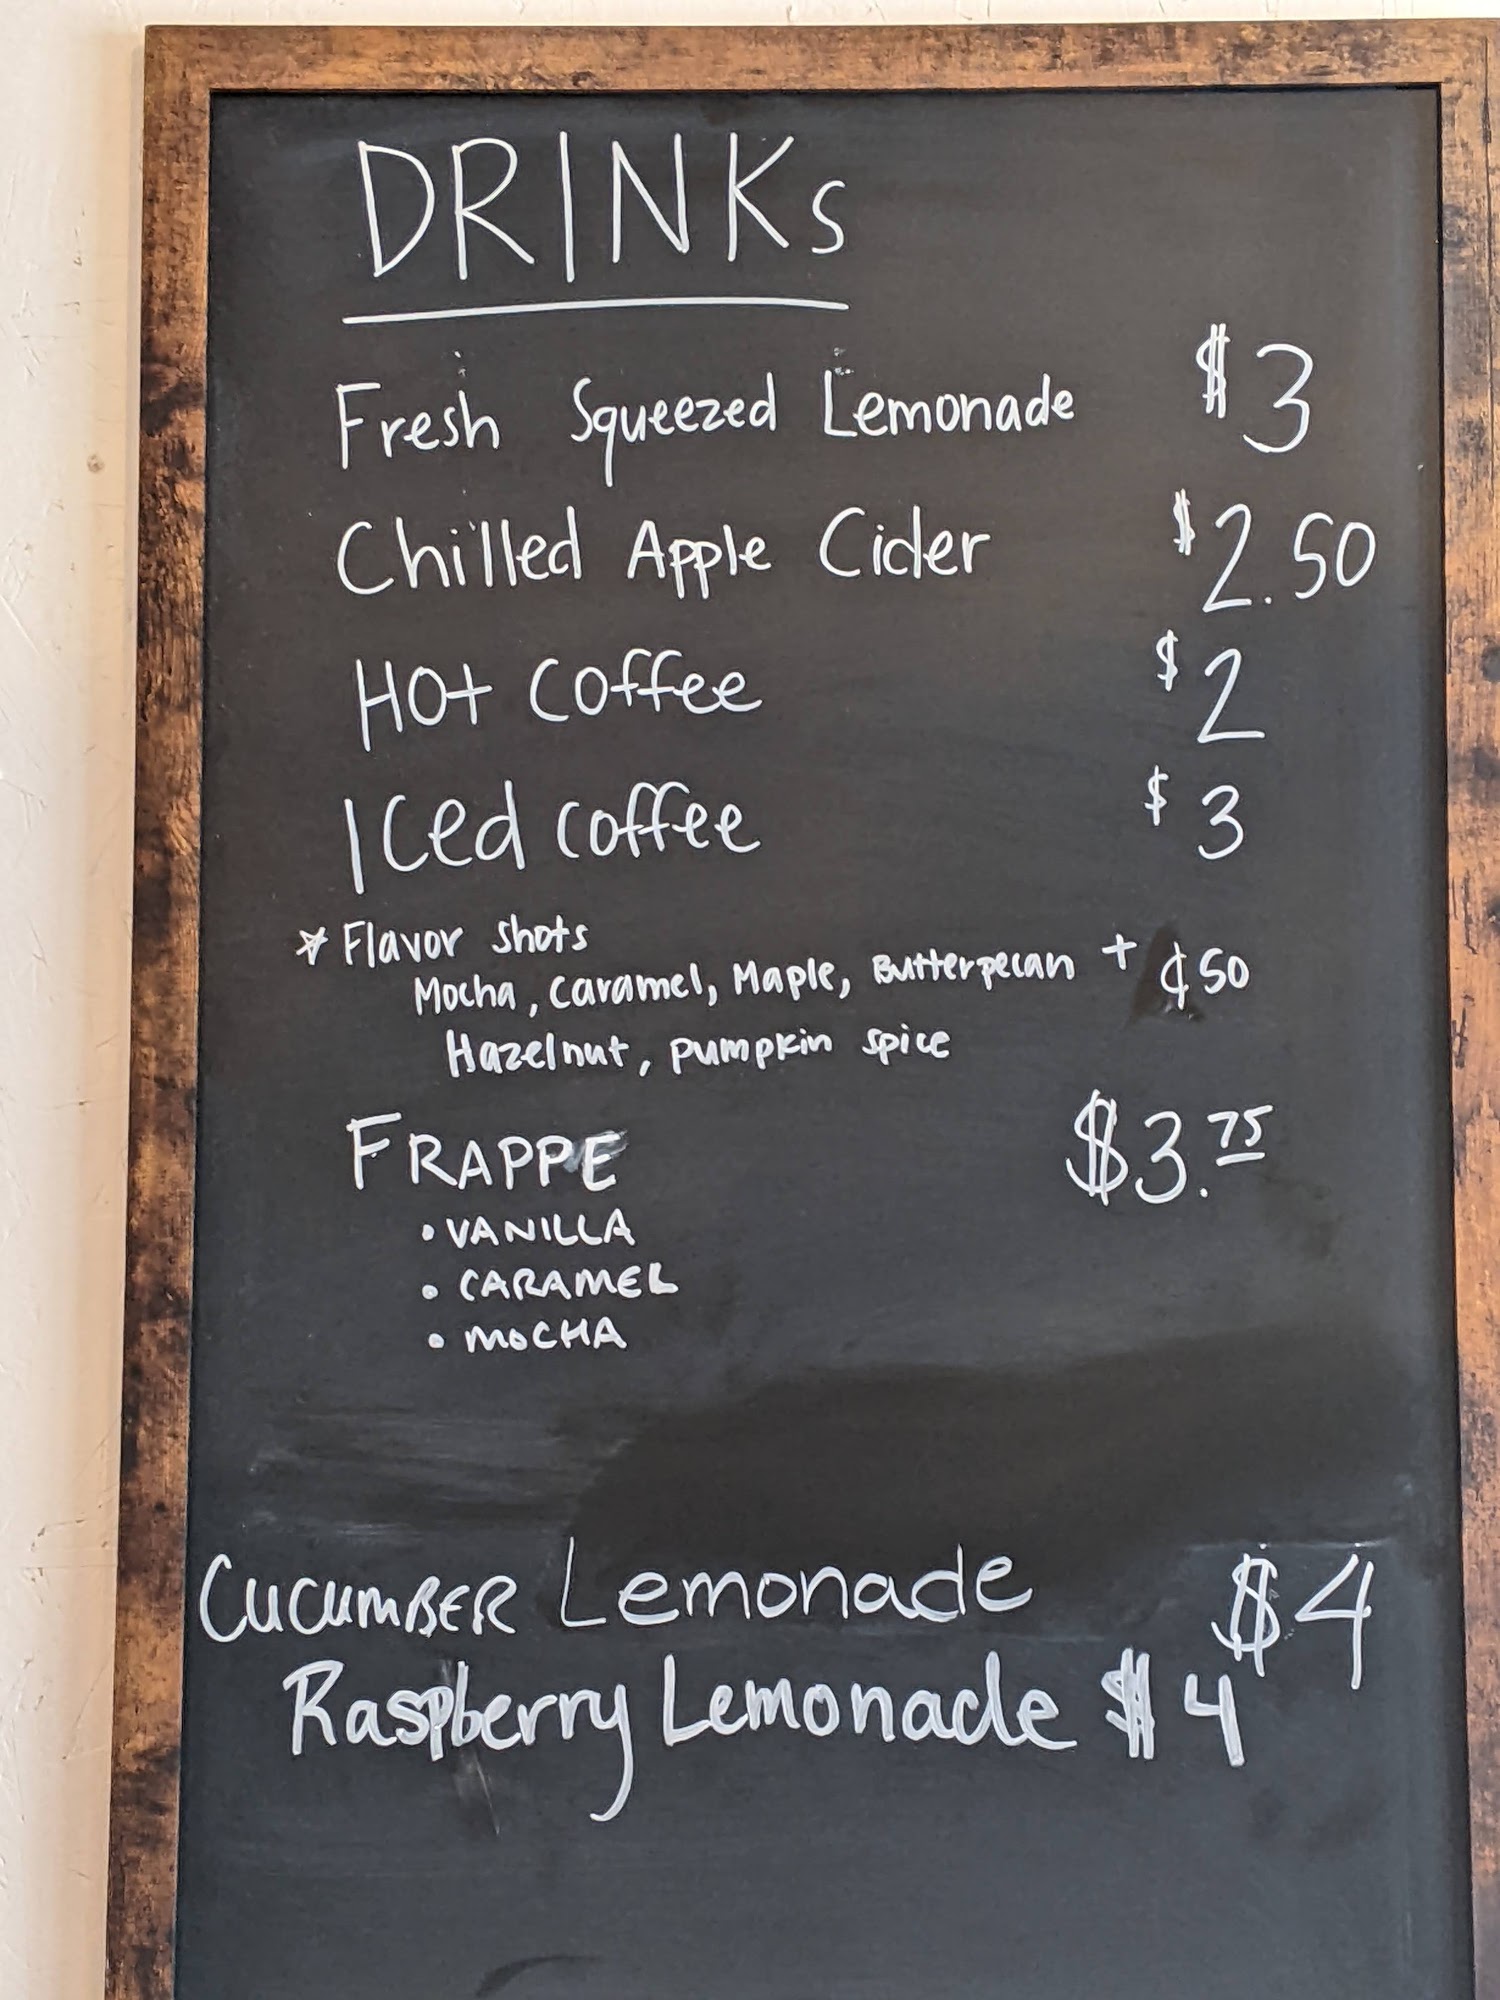 DRINKs
Fresh Squeezed Lemonade $3
Chilled Apple Cider $2.50
Hot Coffee $2
Iced coffee $3
* Flavor shots
Mocha, Caramel, Maple, Butterpecan + ¢50
Hazelnut, pumpkin spice
FRAPPE $3.75
• VANILLA
• CARAMEL
• MOCHA
CUCUMBER Lemonade $4
Raspberry Lemonade $4